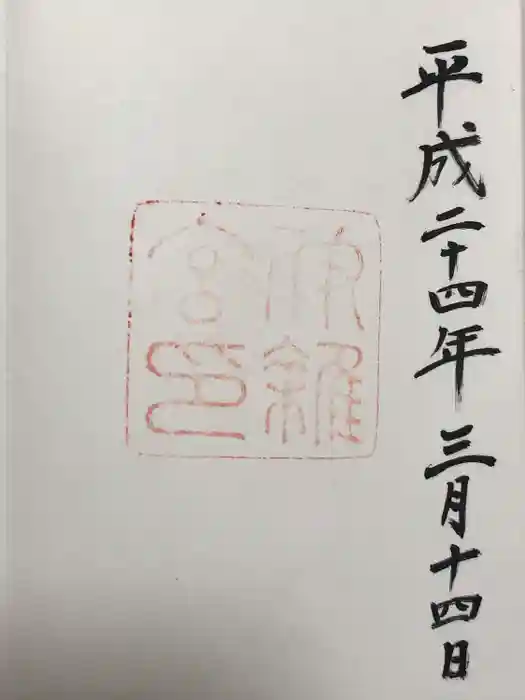 平成二十四年三月十四日
宮印